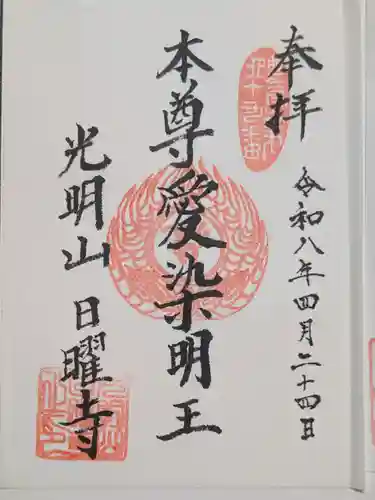 奉拝
令和八年四月二十四日
本尊愛染明王
光明山
日曜寺